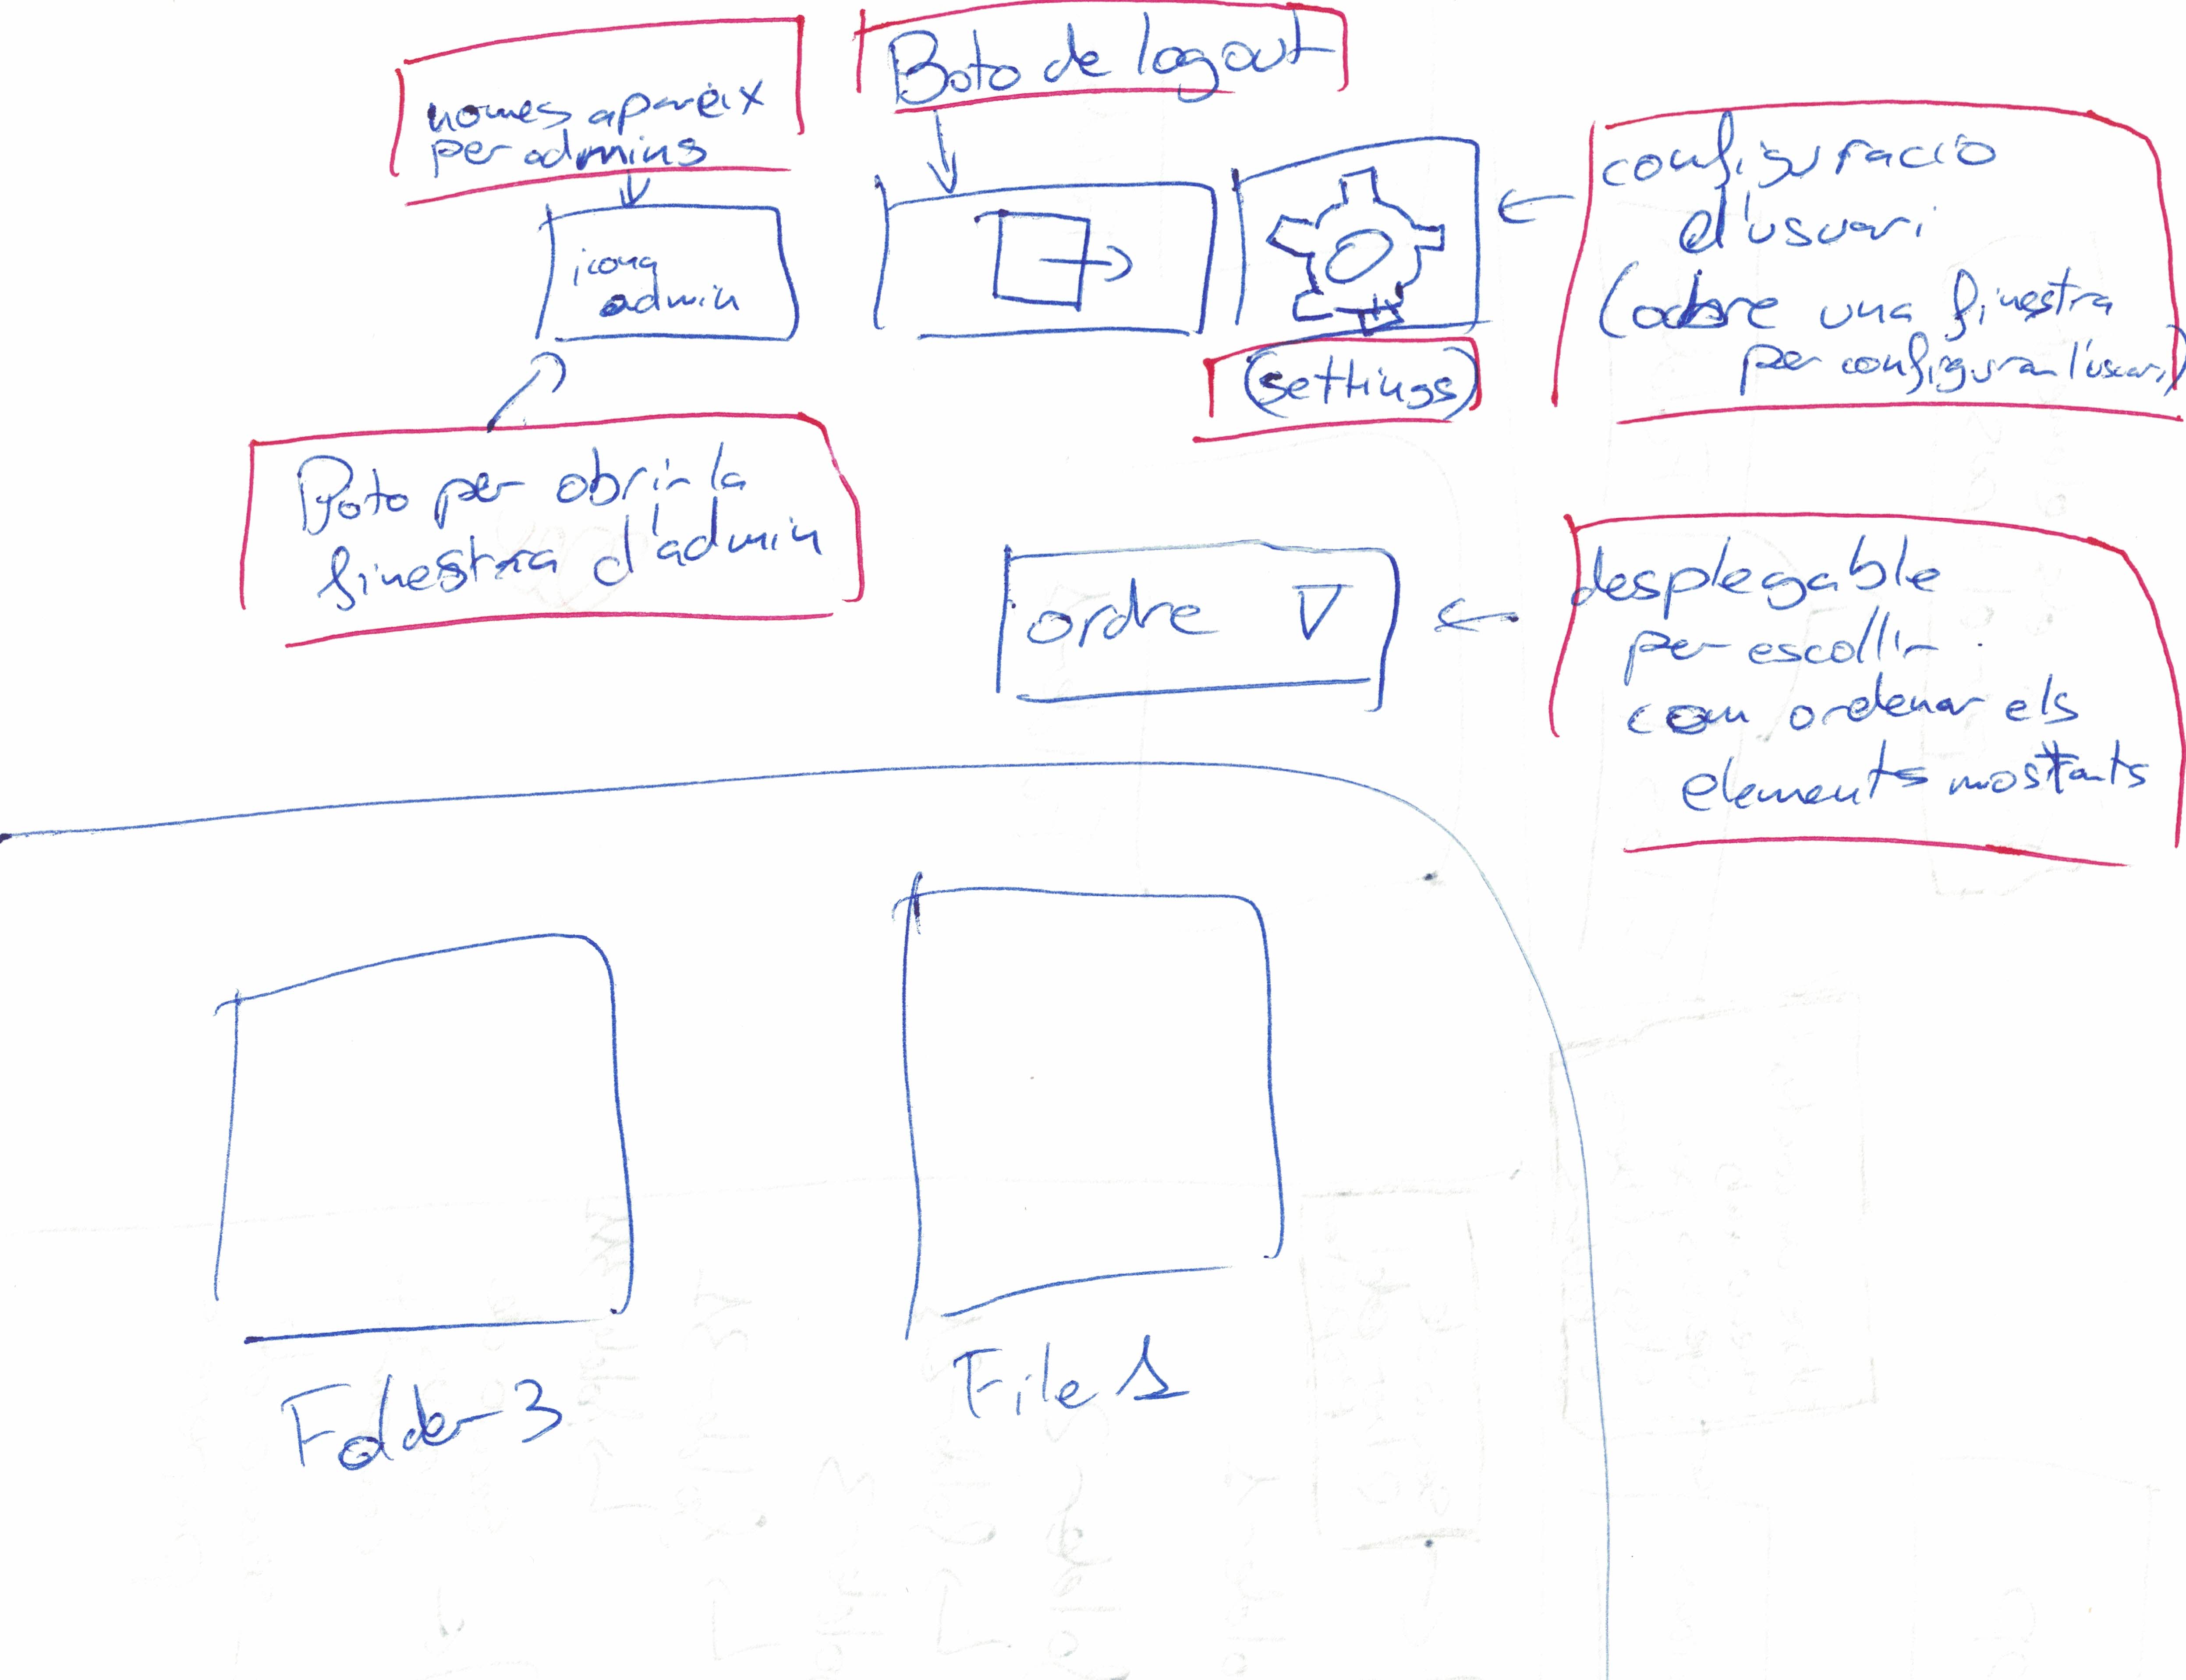 Boto de logout
nomes apareix
per admins
configuracio
d'usuari
(obre una finestra
per configurar l'usuari)
icona
admin
(settings)
Boto per obrir la
finestra d'admin
ordre ▽
desplegable
per escollir
com ordenar els
elements mostrats
Folder 3
File 1